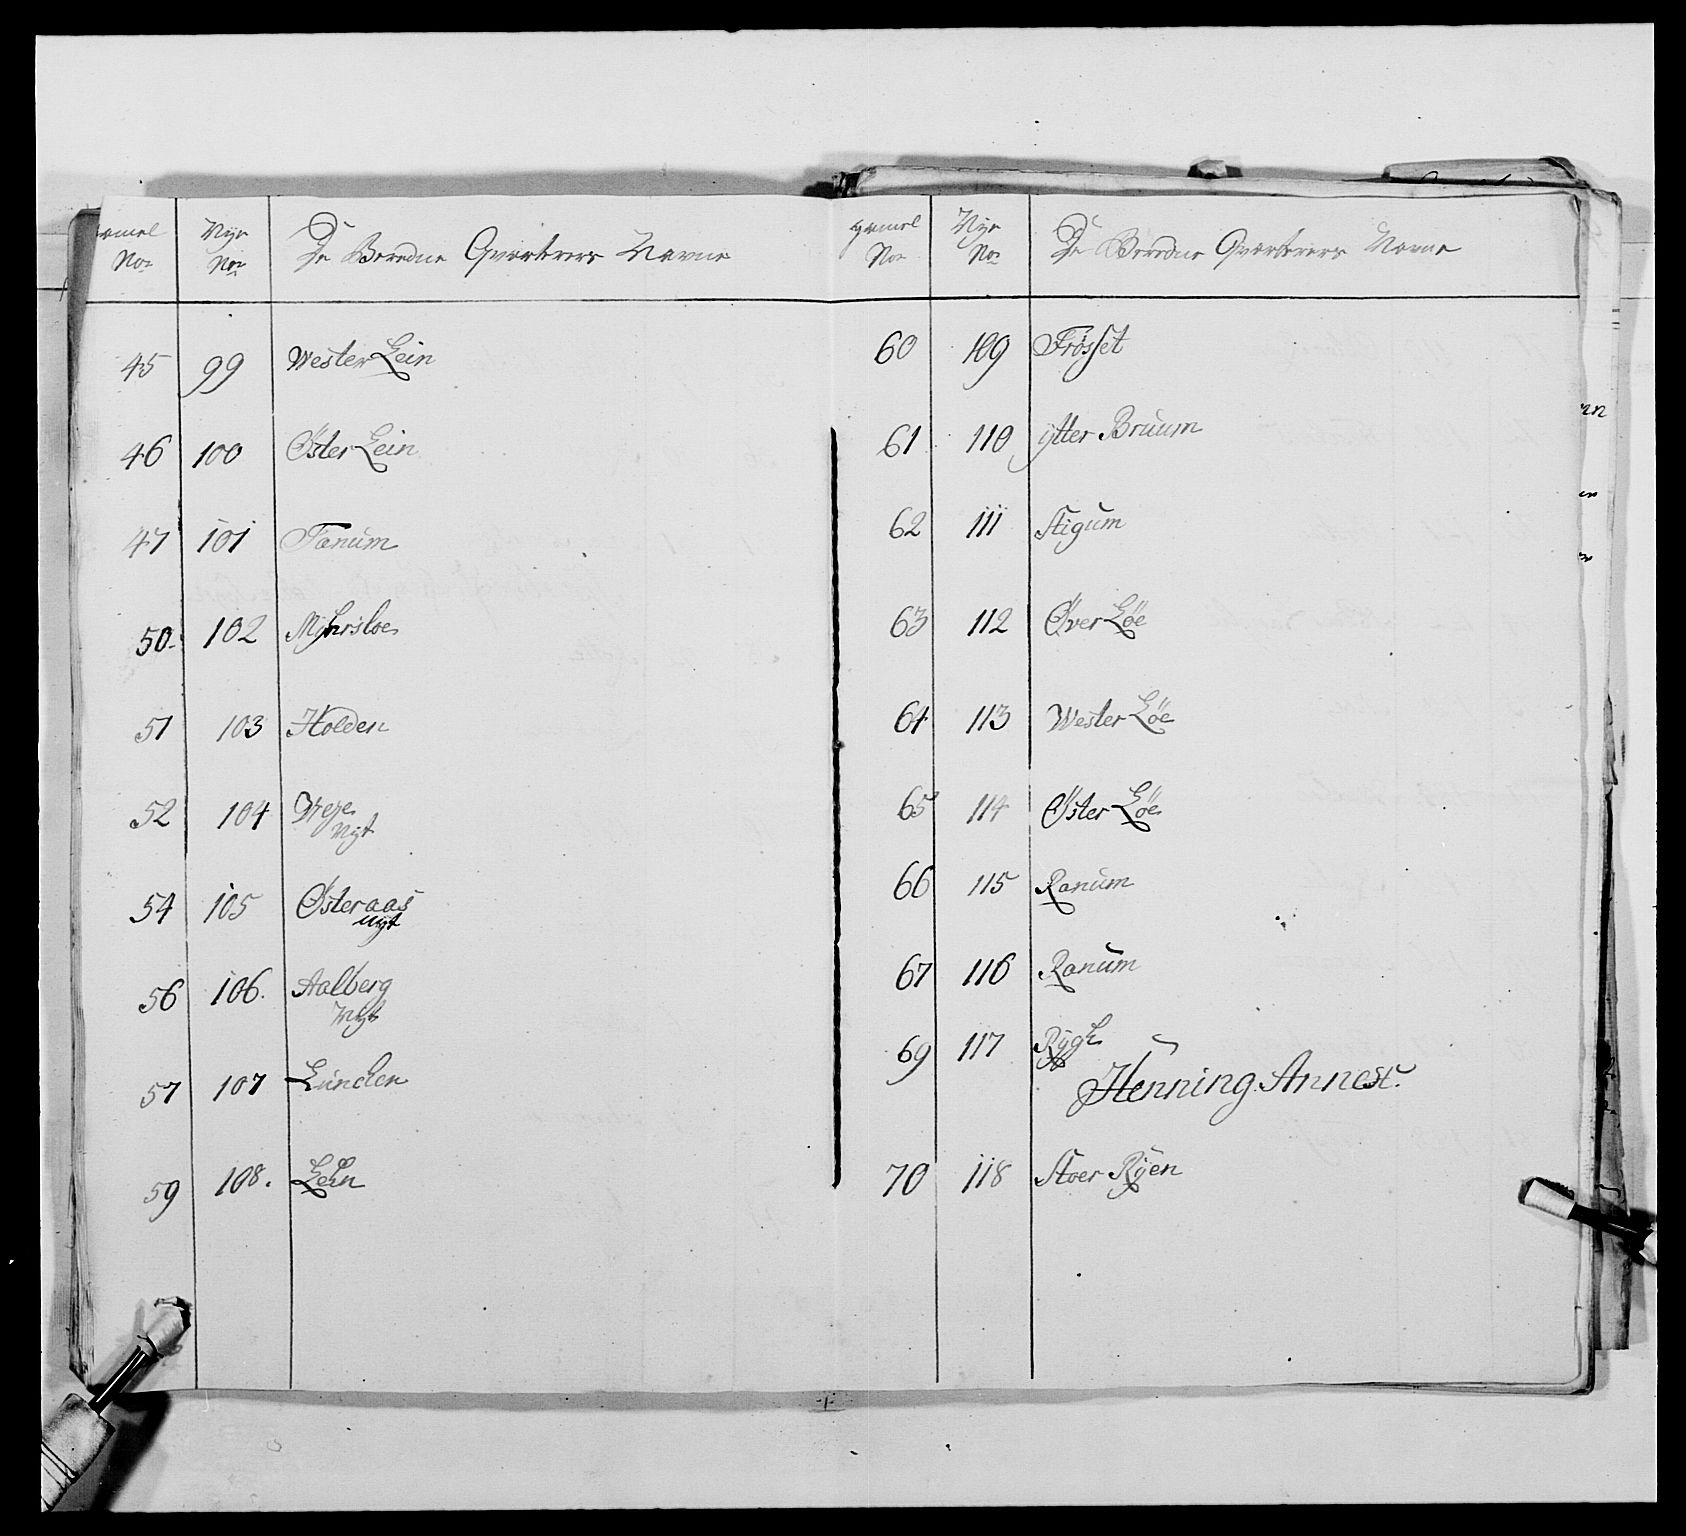 gamel Nye De Beredne Qvarterers Navne
No No
45 99 Wester Lein
46 100 Öster Lein
47 101 Fanum
50. 102 Myhrsloe
51 103 Holden
52 104 Weje
Nyt
54 105 Østeraas
nyt
56 106. Aalberg
Nyt
57 107 Lunden
59 108. Lein
gamel Nye De Beredne Qvarterers Navne
No No
60 109 Frösset
61 110 ytter Bruum
62 111 Stigum
63 112 Över Löe
64 113 Wester Löe
65 114 Öster Löe
66 115 Ranum
67 116 Ranum
69 117 Rygh
Henning Annest.
70 118 Stoer Ryen